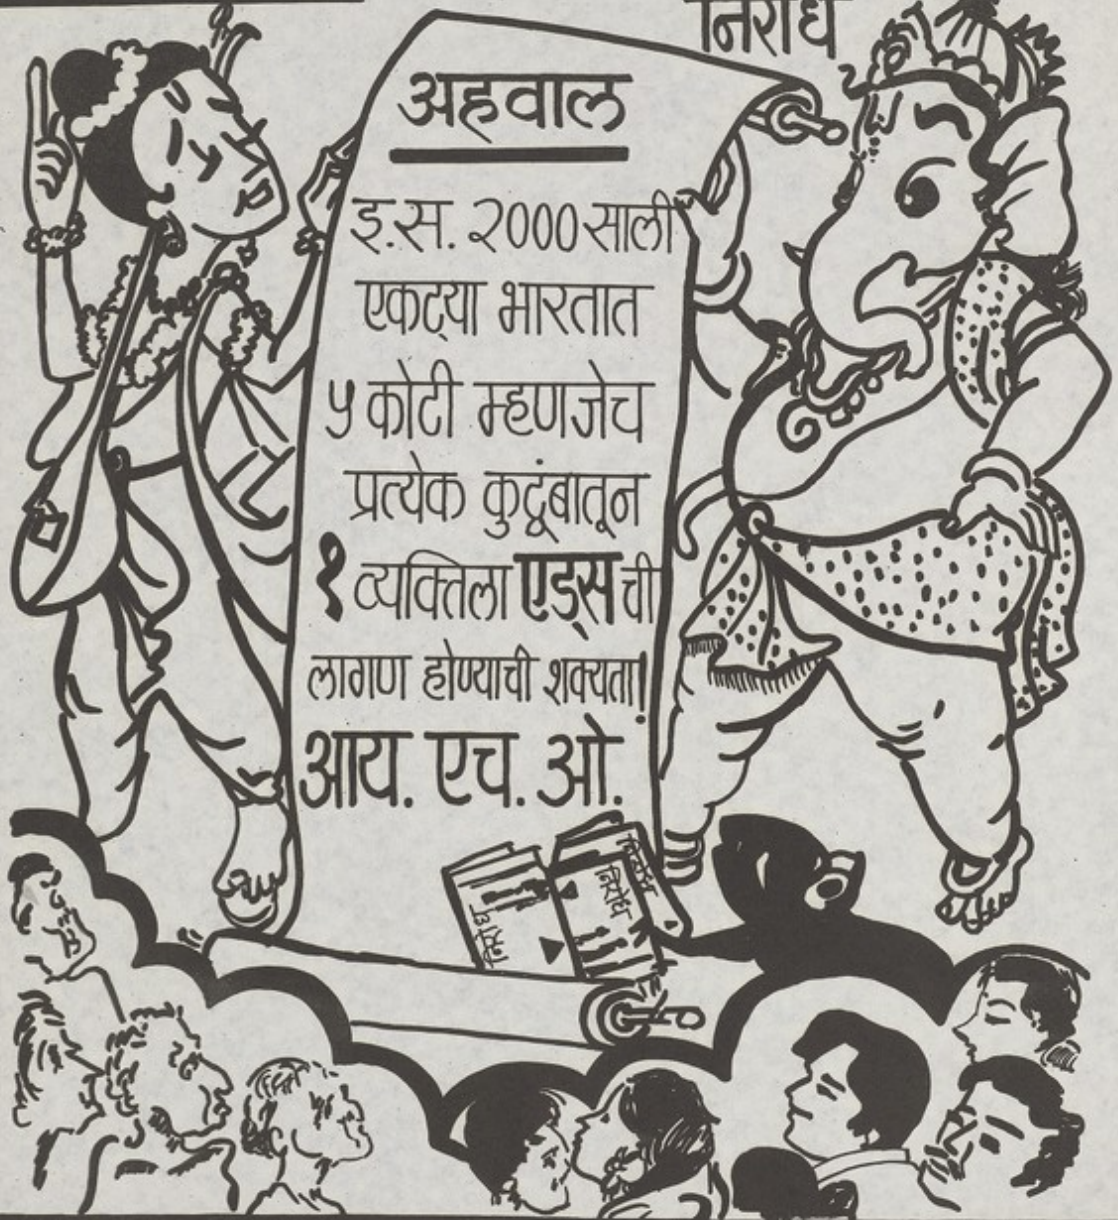 निरोध
अहवाल
इ.स. २००० साली
एकट्या भारतात
५ कोटी म्हणजेच
प्रत्येक कुटूंबातून
१ व्यक्तिला एड्स ची
लागण होण्याची शक्यता!
आय. एच. ओ.
निरोध
निरोध